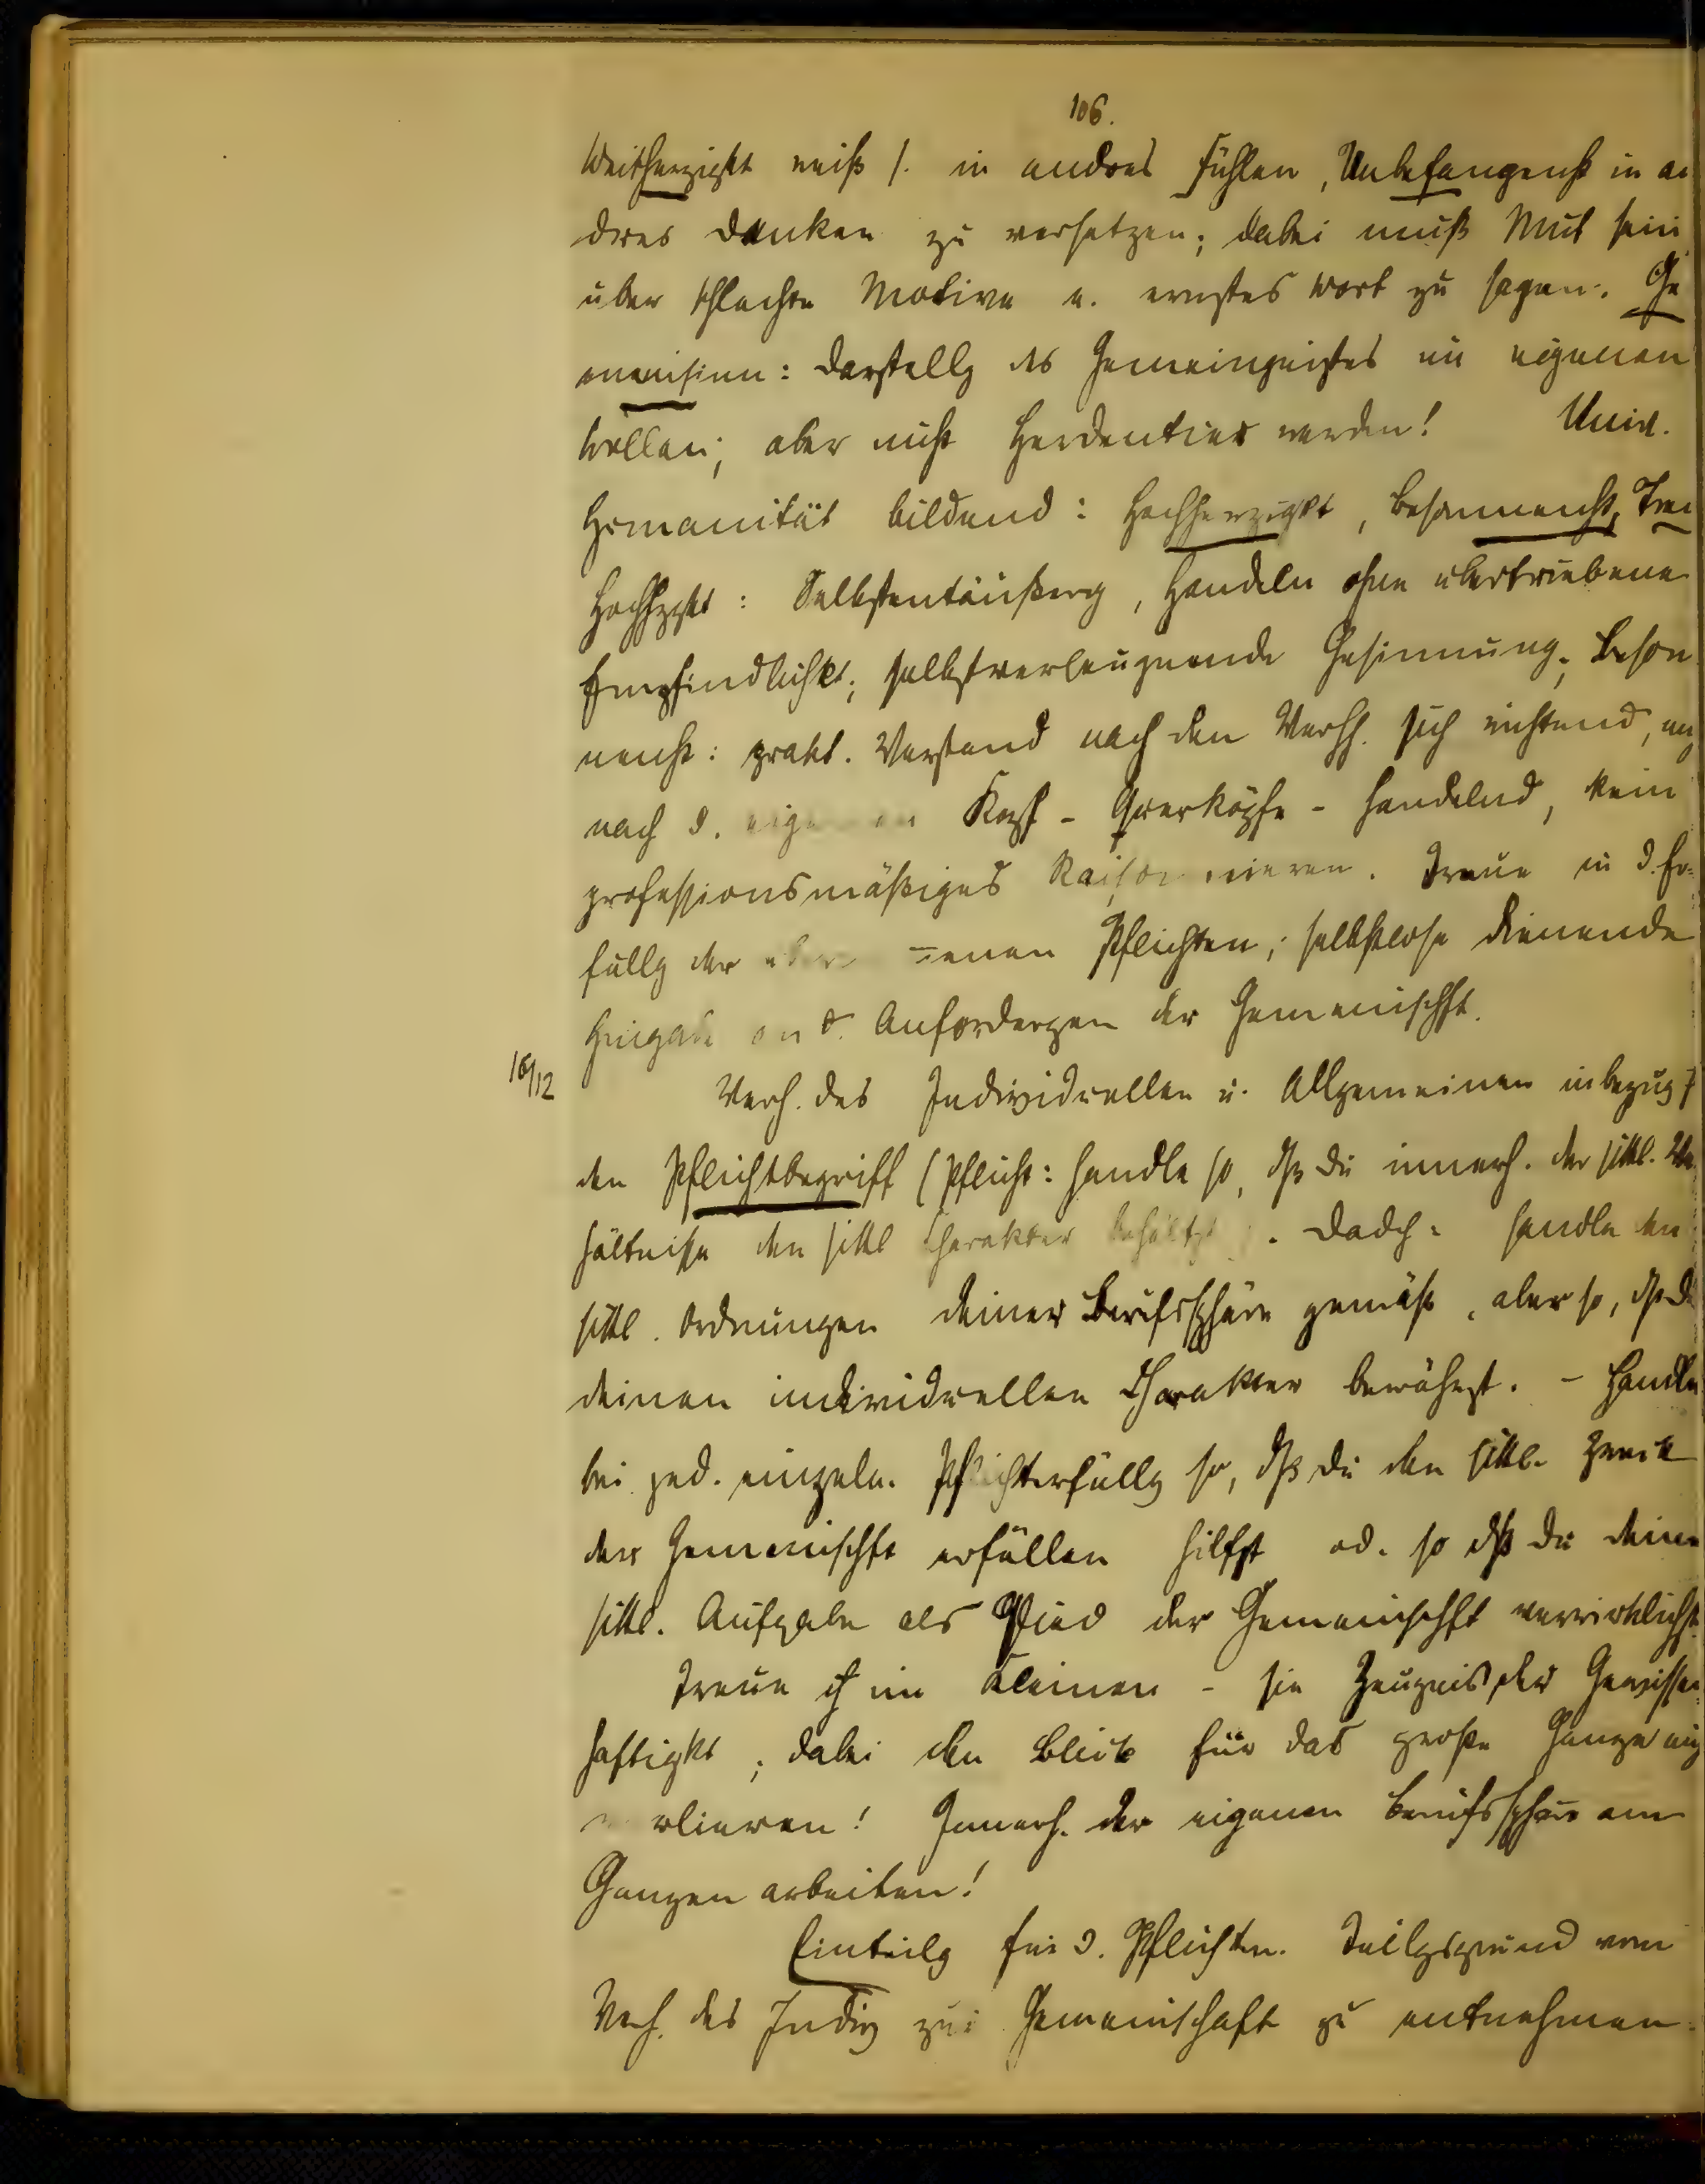 106.
Weitherzigkt weiß s. in andres Fühlen, Unbefangenht in an
dres Denken zu versetzen; dabei muß Mut sein
über schlechte Motive e. ernstes Wort zu sagen. Ge
meinsinn: Darstellg des Gemeingeistes im eigenen
Wollen; aber nicht Herdentier werden! Univ.
Humanität bildend: Hochherzigkt, Besonnenht, Treu
Hochhzgkt: Selbstentäußerg, Handeln ohne übertriebene
Empfindlichkt; selbstverleugnende Gesinnung. Beson
nenht: prakt. Verstand nach den Verhh. sich richtend,
nach d. eigenen Kopf - Querköpfe - handelnd, kein
professionsmäßiges Raisonnieren. Treue in d. Er
füllg der Pflichten; selbstlose dienende
Hingabe an d. Anfordergen der Gemeinschft.
16/12
Verh. des Individuellen u. Allgemeinen inbezug
den Pflichtbegriff (Pflicht: handle so, dß du innerh. der sittl. Ver
hältnisse den sittl Charakter behältst). Dadch: handle den
sittl. Ordnungen deiner Berufssphäre gemäß, aber so, dß du
deinen individuellen Charakter bewährst. - Handle
bei jed. einzeln. Pflichterfüllg so, dß du den sittl. Zweck
der Gemeinschft erfüllen hilfst od. so dß du deine
sittl. Aufgabe als Glied der Gemeinschft verwirklichst.
Treue im Kleinen - sie Zeugnis der Gewissen
haftigkt; dabei den Blick für das große Ganze
verlieren! Innerh. der eigenen Berufssphäre am
Ganzen arbeiten!
Einteilg für d. Pflichten. Teilgsgrund vom
Verh. des Indiv zur Gemeinschaft zu entnehmen.